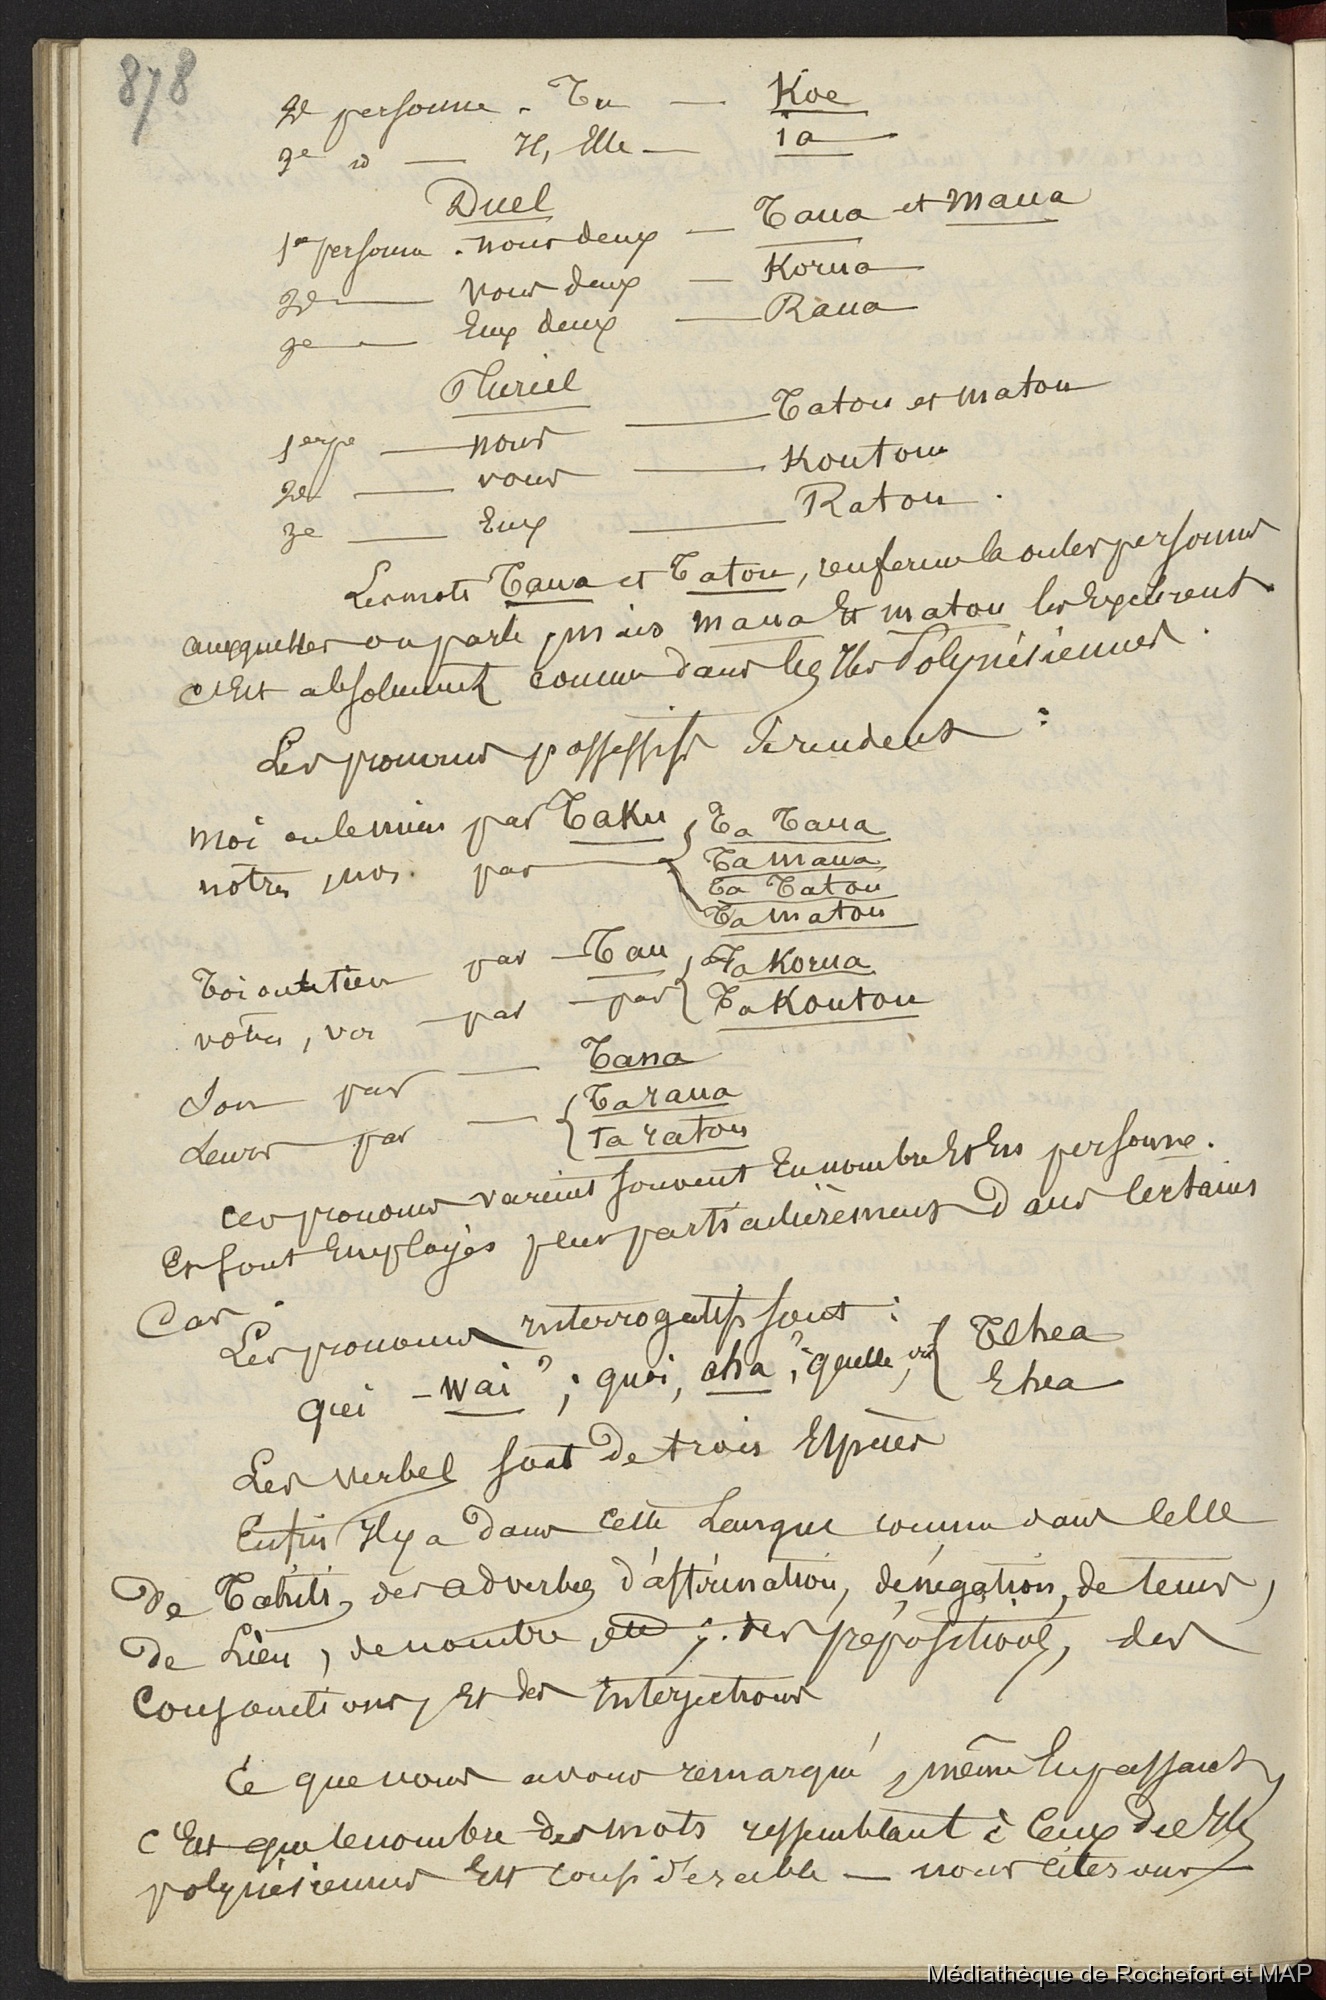 878
2e personne - Tu — Koe
3e id — Il, Elle — ia
Duel
1re personne - nous deux — Taua et Maua
2e — vous deux — Korua
3e — Eux deux — Raua
Pluriel
1ere pe — nous — Tatou et matou
2e — vous — Koutou
3e — Eux — Ratou.
Les mots Taua et Tatou, renferme la ou les personnes
auxquelles on parle, mais maua Et matou les Excluent.
C'est absolument comme dans les Iles Polynésiennes.
Les pronoms possessifs se rendent :
Moi ou le mien par Taku
notres, nos. par { Ta Taua
Ta maua
Ta Tatou
Ta matou
Toi ou le tien par — Tau
votres, vos — par — par { Ta Korua
Ta Koutou
Son par — Tana
Leurs par — { Ta raua
Ta ratou
Ces pronoms varient souvent En nombre Et En personne.
Et sont Employés plus particulièrement Dans Certains
Cas.
Les pronoms interrogatifs sont :
qui - wai ? ; quoi, aha ? ; quelle, { Tehea
Ehea
Les verbes sont de trois Espèces
Enfin Il y a dans cette Langue comme dans celle
De Tahiti, des adverbes d'affirmation, dénégation, de tems,
De Lieu, de nombre, etc ; des prépositions, des
Conjonctions, Et des interjections
Ce que nous avons remarqué, même En passant,
C'Est que le nombre des mots ressemblant à Ceux des Iles
polynésiennes Est considérable — nous citerons
Médiathèque de Rochefort et MAP